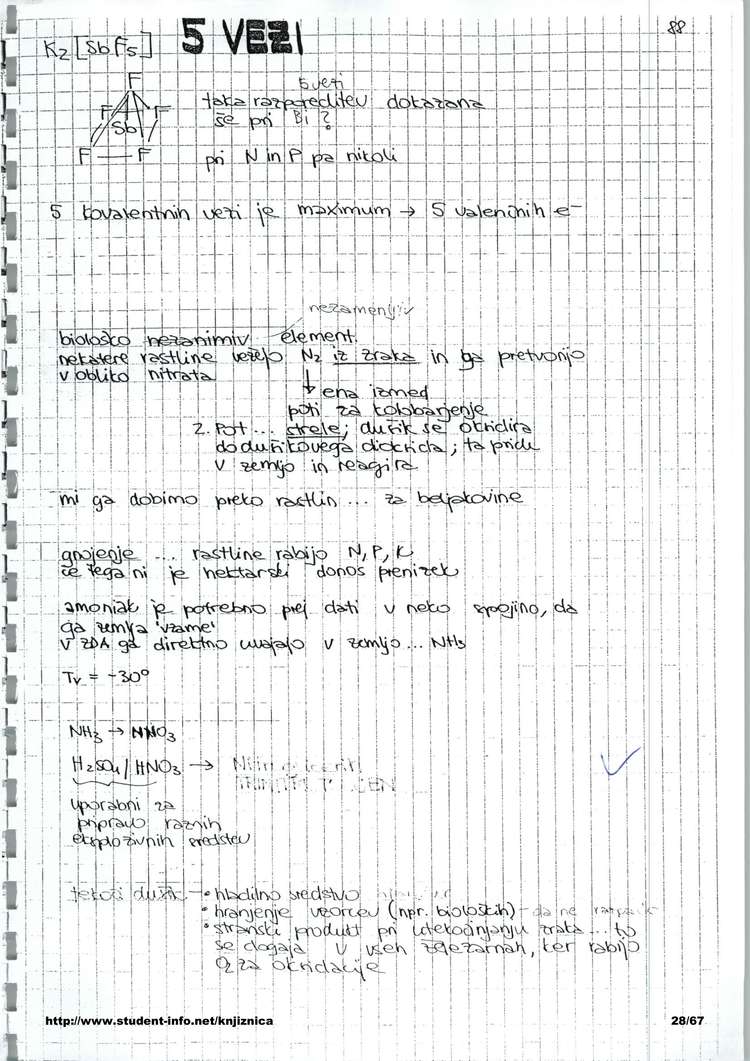 88
K2[SbF5] 5 VEZI
F
F F
Sb
F — F
5 vezi
taka razporeditev dokazana
še pri Bi?
pri N in P pa nikoli
5 kovalentnih vezi je maximum → 5 valenčnih e⁻
nezamenljiv
biološko nezanimiv element.
nekatere rastline vežejo N2 iz zraka in ga pretvorijo
v obliko nitrata
↓ ena izmed
poti za kolobarjenje
2. Pot ... strele; dušik se oksidira
do dušikovega dioksida; ta pride
v zemljo in reagira
mi ga dobimo preko rastlin ... za beljakovine
gnojenje ... rastline rabijo N, P, K
če tega ni je hektarski donos prenizek
amoniak je potrebno prej dati v neko spojino, da
ga zemlja 'vzame'
v ZDA ga direktno uvajajo v zemljo ... NH3
Tv = -30°
NH3 → HNO3
H2SO4 / HNO3 →
uporabni za
pripravo raznih
eksplozivnih sredstev
tekoči dušik • hladilno sredstvo
• hranjenje vzorcev (npr. bioloških) - da ne
• stranski produkt pri utekočinjanju zraka ... to
se dogaja v vseh železarnah, ker rabijo
O2 za oksidacije
http://www.student-info.net/knjiznica 28/67